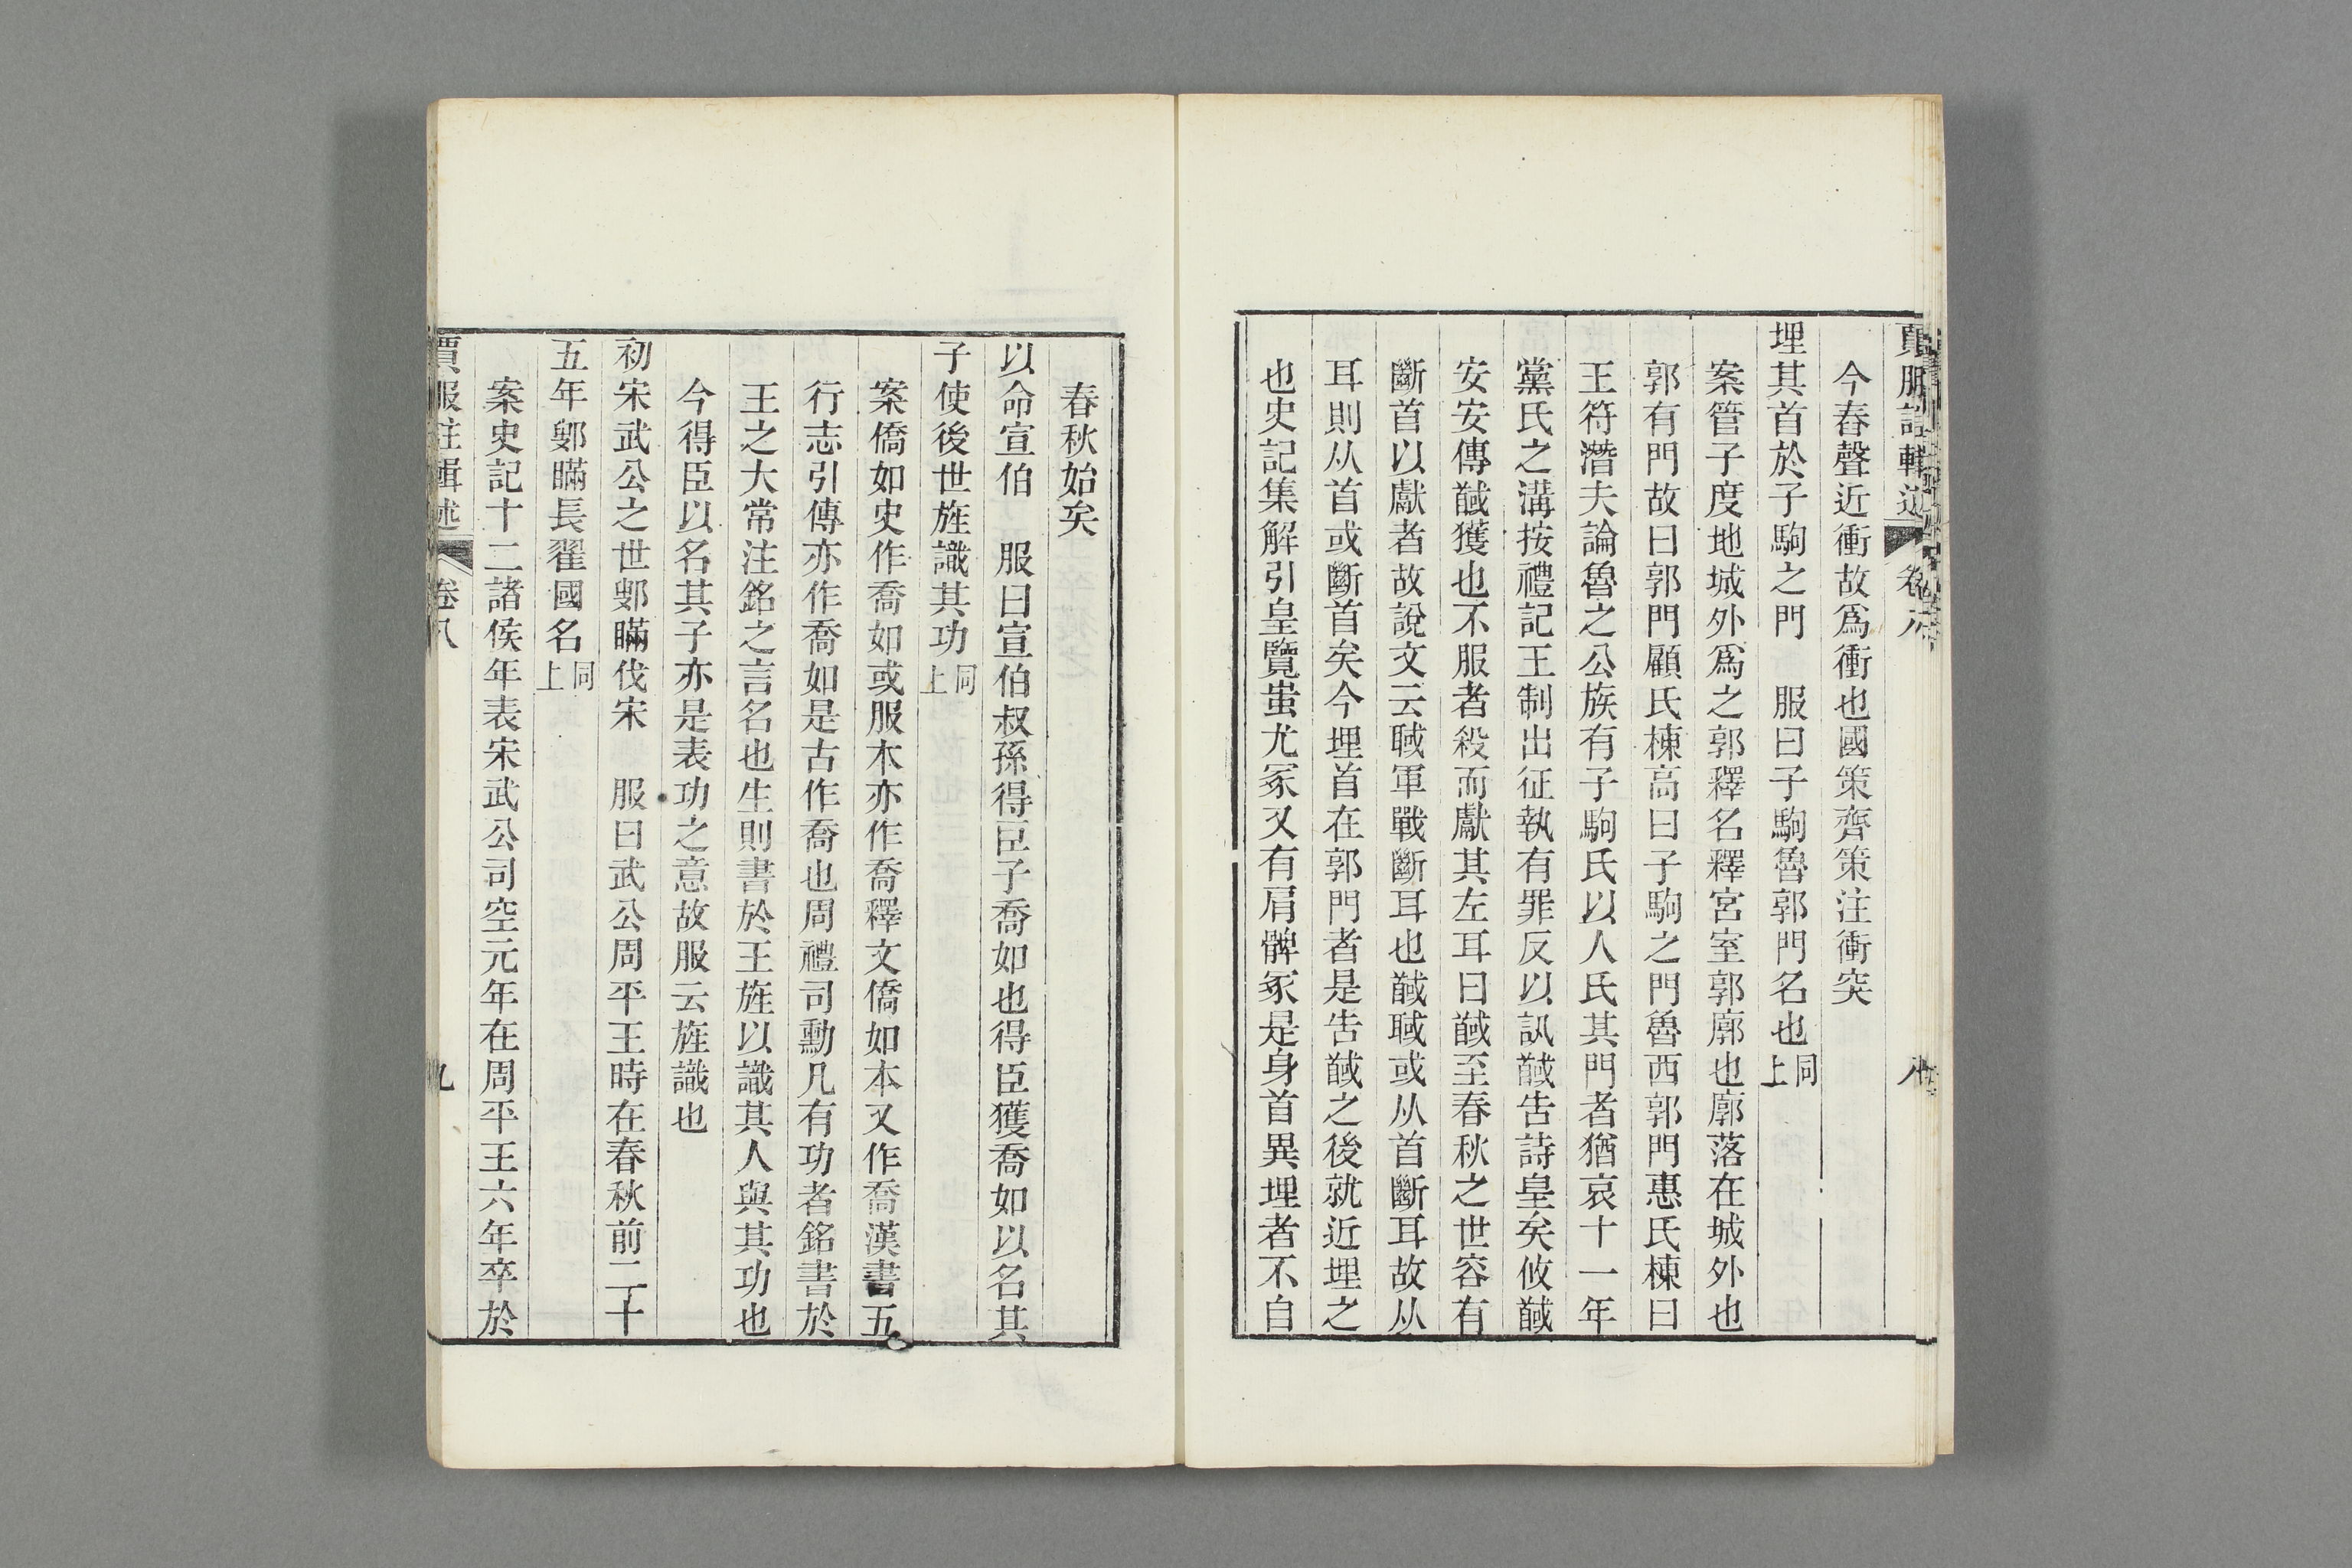 賈服註輯述 卷八 八
今春聲近衝故爲衝也國策齊策注衝突
埋其首於子駒之門 服曰子駒魯郭門名也同上
案管子度地城外爲之郭釋名釋宮室郭廓也廓落在城外也
郭有門故曰郭門顧氏棟高曰子駒之門魯西郭門惠氏棟曰
王符潛夫論魯之公族有子駒氏以人氏其門者猶哀十一年
黨氏之溝按禮記王制出征執有罪反以訊馘告詩皇矣攸馘
安安傳馘獲也不服者殺而獻其左耳曰馘至春秋之世容有
斷首以獻者故說文云聝軍戰斷耳也馘聝或从首斷耳故从
耳則从首或斷首矣今埋首在郭門者是告馘之後就近埋之
也史記集解引皇覽蚩尤冢又有肩髀冢是身首異埋者不自
春秋始矣
以命宣伯 服曰宣伯叔孫得臣子喬如也得臣獲喬如以名其
子使後世旌識其功同上
案僑如史作喬如或服本亦作喬釋文僑如本又作喬漢書五
行志引傳亦作喬如是古作喬也周禮司勳凡有功者銘書於
王之大常注銘之言名也生則書於王旌以識其人與其功也
今得臣以名其子亦是表功之意故服云旌識也
初宋武公之世鄋瞞伐宋 服曰武公周平王時在春秋前二十
五年鄋瞞長翟國名同上
案史記十二諸侯年表宋武公司空元年在周平王六年卒於
賈服註輯述 卷八 九